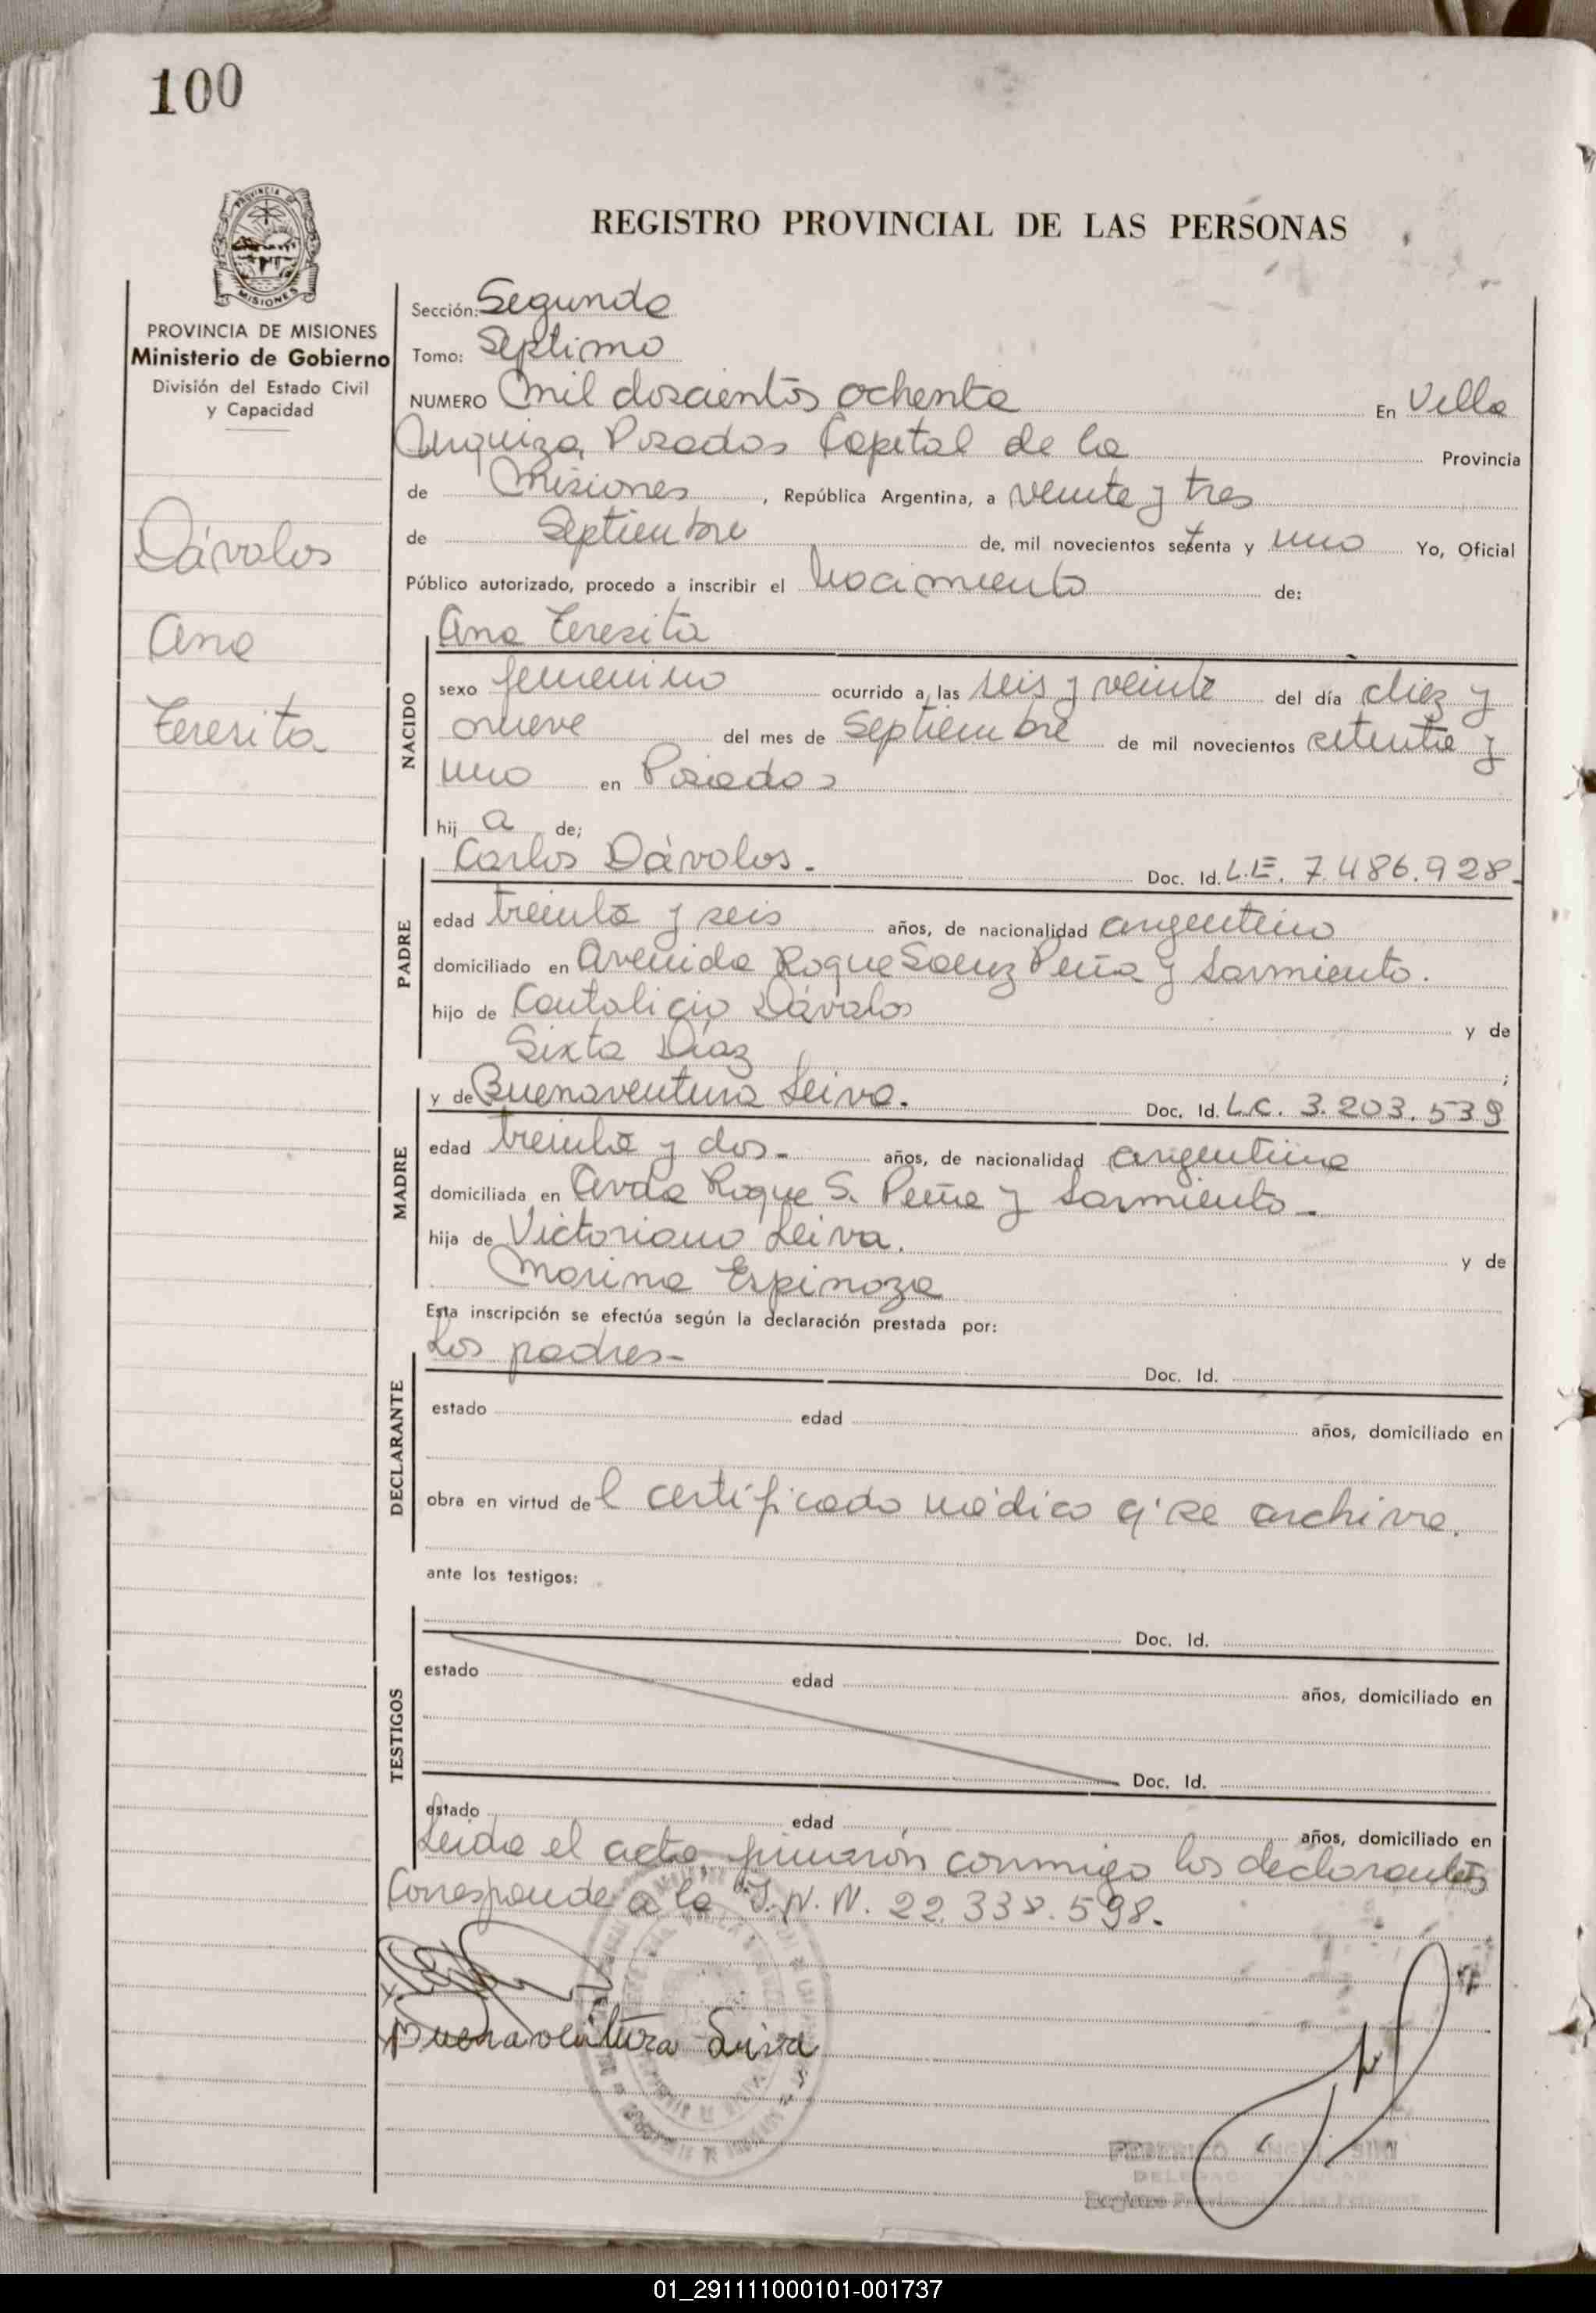 100
PROVINCIA DE
MISIONES
PROVINCIA DE MISIONES
Ministerio de Gobierno
División del Estado Civil
y Capacidad
Dávalos
Ana
Teresita
REGISTRO PROVINCIAL DE LAS PERSONAS
Sección: Segunda
Tomo: Septimo
NUMERO Mil doscientos ochenta En Villa
Urquiza, Posadas Capital de la Provincia
de Misiones, República Argentina, a veinte y tres
de Septiembre de, mil novecientos setenta y uno Yo, Oficial
Público autorizado, procedo a inscribir el nacimiento de:
NACIDO
Ana Teresita
sexo femenino ocurrido a las seis y veinte del día diez y
nueve del mes de Septiembre de mil novecientos setenta y
uno en Posadas
hij a de;
PADRE
Carlos Dávalos.- Doc. Id. L.E. 7.486.928-
edad treinta y seis años, de nacionalidad argentino
domiciliado en Avenida Roque Saenz Peña y Sarmiento.
hijo de Cantalicio Dávalos y de
Sixta Díaz ;
MADRE
y de Buenaventura Leiva. Doc. Id. L.C. 3.203.539
edad treinta y dos.- años, de nacionalidad argentina
domiciliada en Avda Roque S. Peña y Sarmiento-
hija de Victoriano Leiva. y de
Marina Espinoza
Esta inscripción se efectúa según la declaración prestada por:
DECLARANTE
Los padres- Doc. Id.
estado edad años, domiciliado en
obra en virtud de l certificado médico q' se archiva.
ante los testigos:
TESTIGOS
Doc. Id.
estado edad años, domiciliado en
Doc. Id.
estado edad años, domiciliado en
Leida el acta, firmaron conmigo los declarantes
Corresponde a la I.N.N. 22.338.598.
Buenaventura Leiva
FEDERICO
01_291111000101-001737